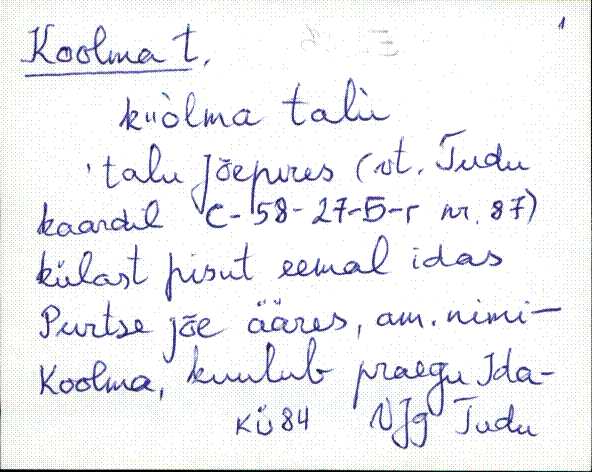 1
Koolma t.
küòlma talù
'talu Jõepures (vt. Tudu
kaardil C-58-27-Б-г nr. 87)
külast pisut eemal idas
Purtse jõe ääres, am. nimi-
Koolma, kuulub praegu Ida-
KÜ 84 VJg Tudu